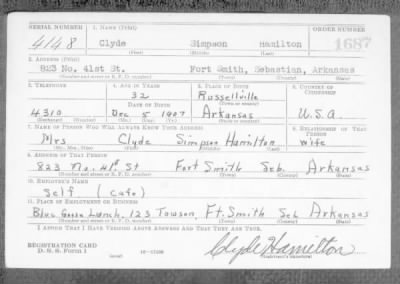 SERIAL NUMBER 1. NAME (Print) ORDER NUMBER
4148 Clyde Simpson Hamilton 1687
(First) (Middle) (Last)
2. ADDRESS (Print)
823 No. 41st St. Fort Smith, Sebastian, Arkansas
(Number and street or R. F. D. number) (Town) (County) (State)
3. TELEPHONE 4. AGE IN YEARS 5. PLACE OF BIRTH 6. COUNTRY OF CITIZENSHIP
32 Russellville
DATE OF BIRTH (Town or county)
4310 Dec 5 1907 Arkansas U.S.A.
(Exchange) (Number) (Mo.) (Day) (Yr.) (State or country)
7. NAME OF PERSON WHO WILL ALWAYS KNOW YOUR ADDRESS 8. RELATIONSHIP OF THAT PERSON
Mrs Clyde Simpson Hamilton wife
(Mr., Mrs., Miss) (First) (Middle) (Last)
9. ADDRESS OF THAT PERSON
823 No. 41st St Fort Smith Seb. Arkansas
(Number and street or R. F. D. number) (Town) (County) (State)
10. EMPLOYER'S NAME
Self (Cafe)
11. PLACE OF EMPLOYMENT OR BUSINESS
Blue Goose Lunch, 123 Towson, Ft. Smith Seb Arkansas
(Number and street or R. F. D. number) (Town) (County) (State)
I AFFIRM THAT I HAVE VERIFIED ABOVE ANSWERS AND THAT THEY ARE TRUE.
REGISTRATION CARD
D. S. S. Form 1 Clyde Hamilton
(Registrant's signature)